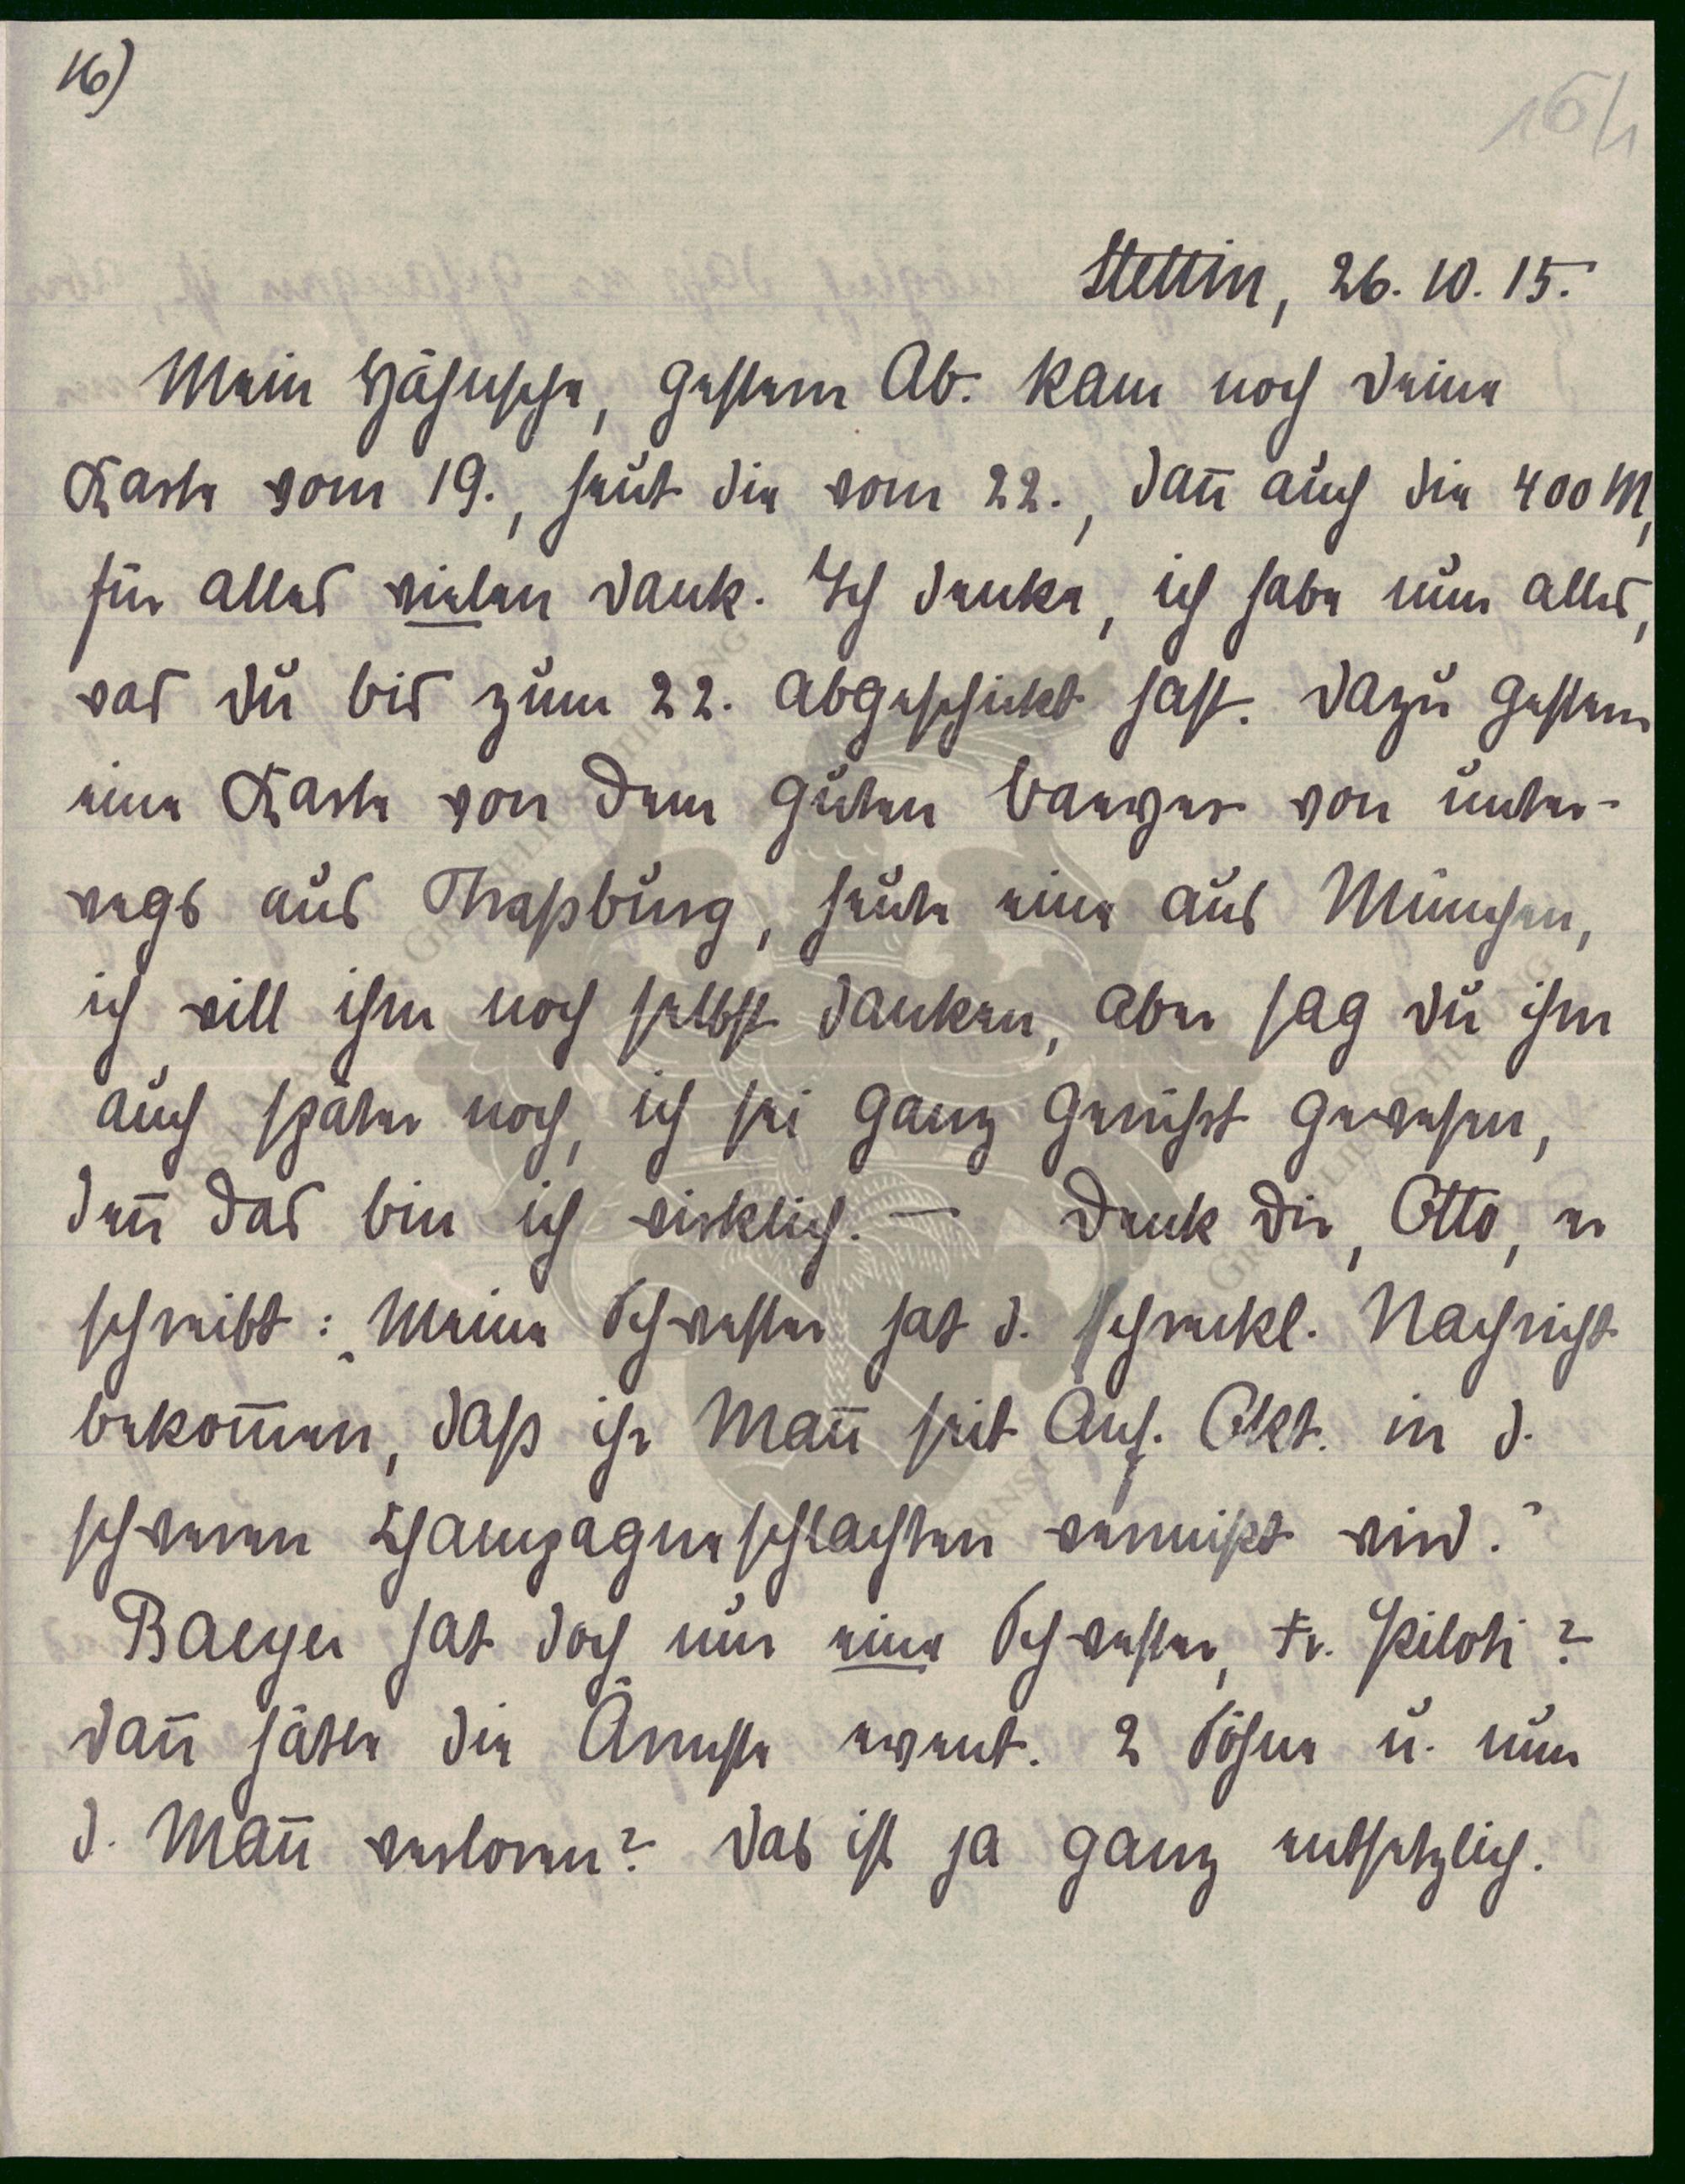 16)
16/1
Stettin, 26. 10. 15.
Mein Hähnsche, gestern Ab. kam noch Deine
Karte vom 19., heut die vom 22., dañ auch die 400 M,
für alles vielen Dank. Ich denke, ich habe nun alles,
was Du bis zum 22. abgeschickt hast. Dazu gestern
eine Karte von dem guten Baeyer von unter-
wegs aus Straßburg, heute eine aus München,
ich will ihm noch selbst danken, aber sag Du ihm
auch später noch, ich sei ganz gerührt gewesen,
deñ das bin ich wirklich. — Denk Dir, Otto, er
schreibt: „Meine Schwester hat d. schreckl. Nachricht
bekom̄en, daß ihr Mañ seit Anf. Okt. in d.
schweren Champagneschlachten vermißt wird."
Baeyer hat doch nur eine Schwester, Fr. Piloti?
Dañ hätte die Ärmste event. 2 Söhne u. nun
d. Mañ verloren? Das ist ja ganz entsetzlich.